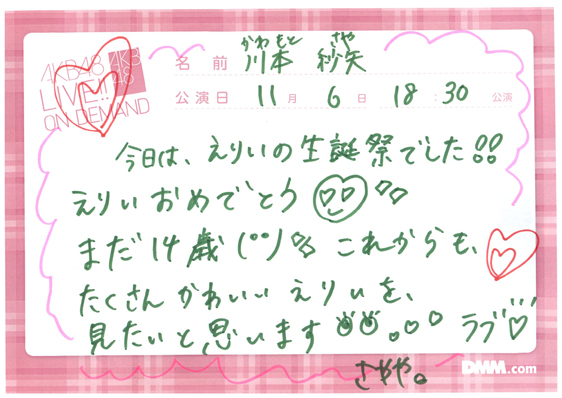 AKB48
LIVE!!
ON DEMAND
AKB
48
かわもと さや
名前 川本 紗矢
公演日 11月 6日 18:30 公演
今日は、えりいの生誕祭でした!!
えりいおめでとう
まだ14歳 これからも、
たくさんかわいいえりいを、
見たいと思います ラブ
さやや。
DMM.com